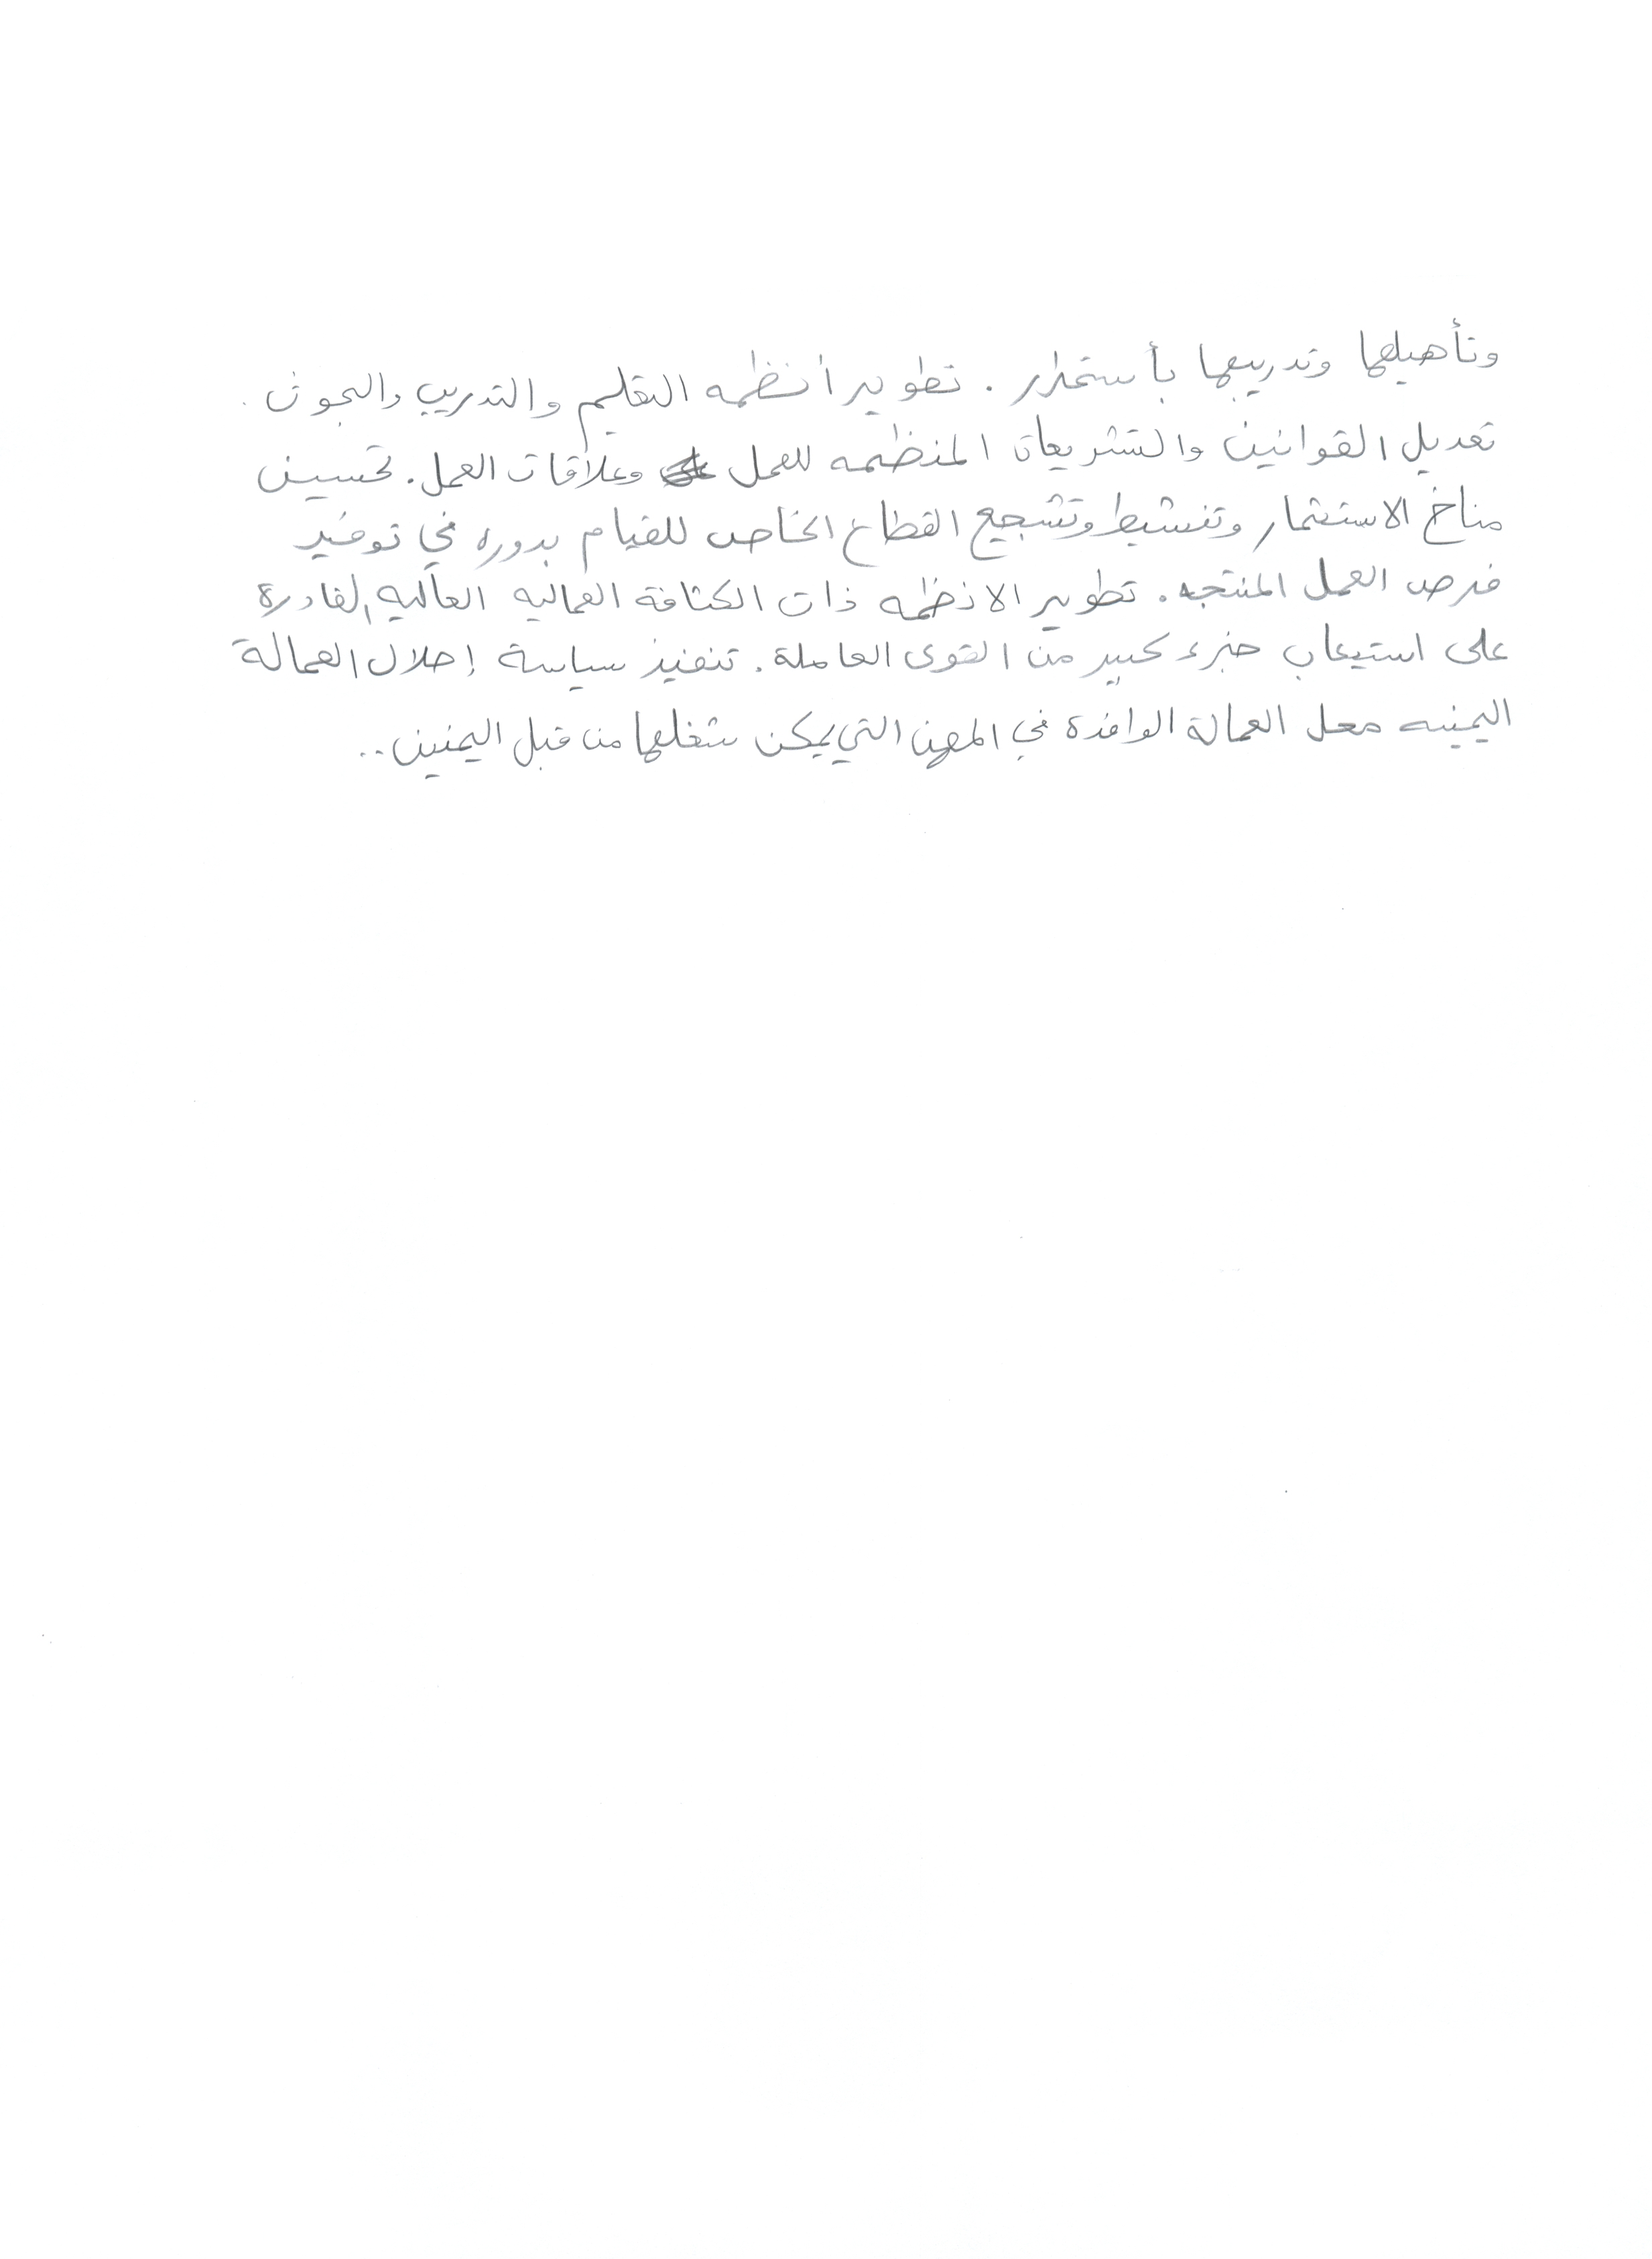 وتأهيلها وتدريبها بأستمرار . تطوير أنظمه التعليم والتدريب والبحوث .
تعديل القوانين والتشريعات المنظمه للعمل وعلاقات العمل . تحسين
مناخ الاستثمار وتنشيط وتشجيع القطاع الخاص للقيام بدوره في توفير
فرص العمل المنتجه . تطوير الانظمه ذات الكثافة العماليه العاليه القادرة
على استيعاب جزء كبير من القوى العاملة . تنفيذ سياسة إحلال العمالة
اليمنيه محل العمالة الوافدة في المهن التي يمكن شغلها من قبل اليمنين ..